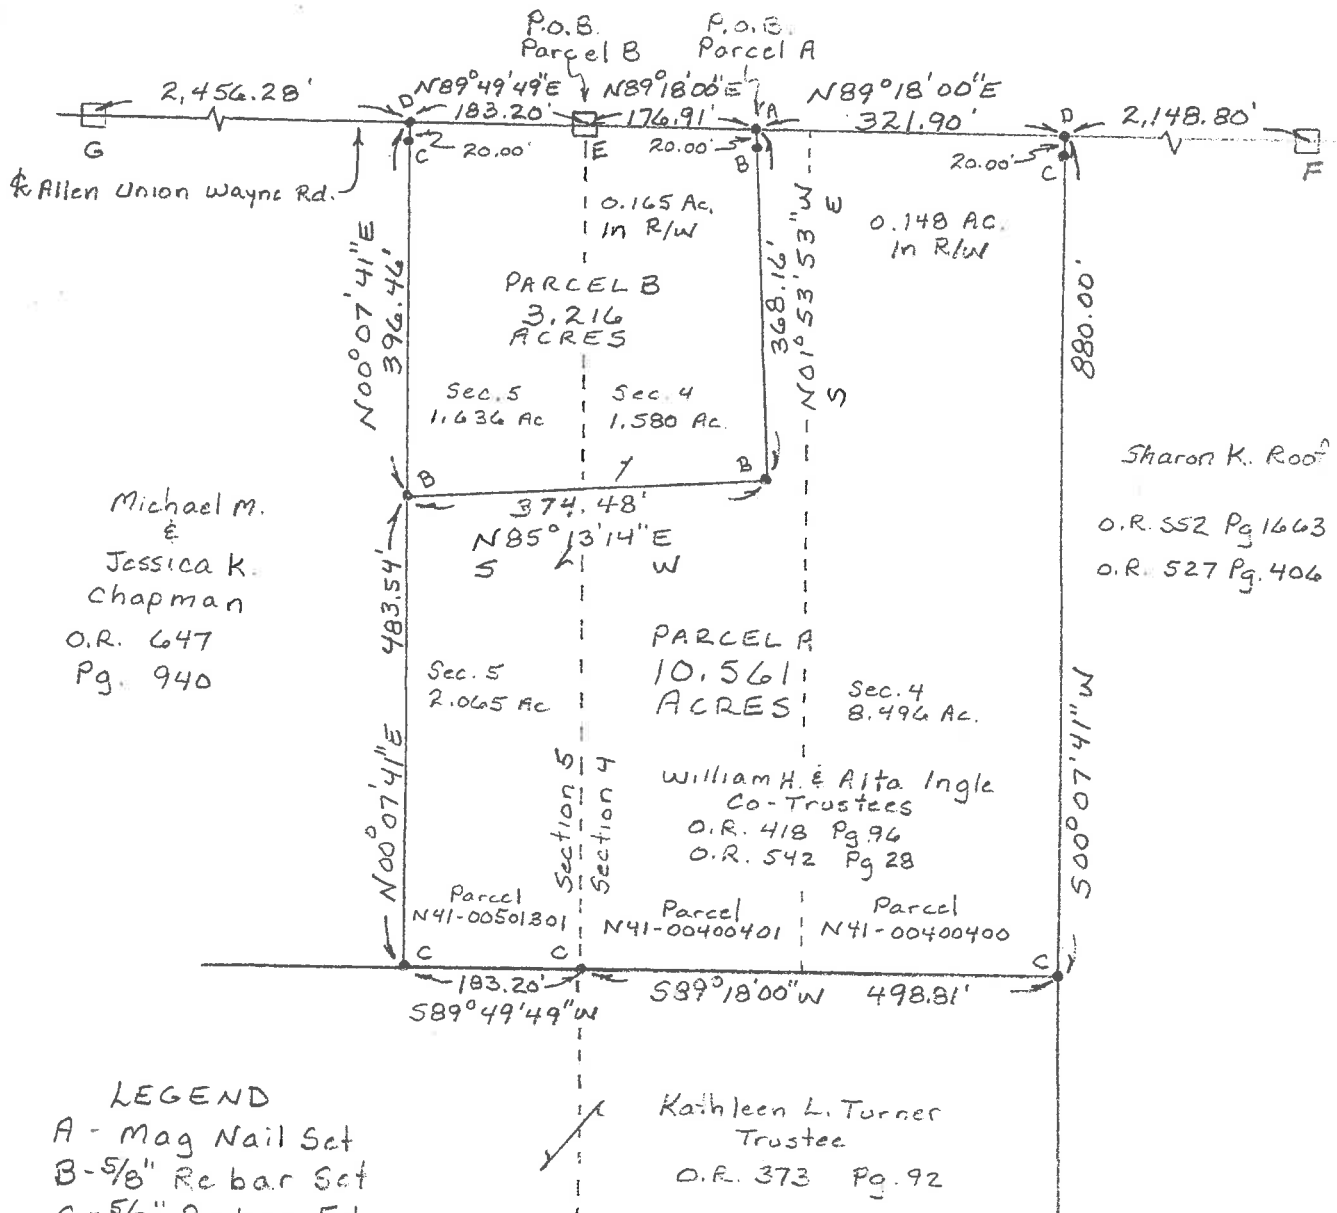 P.O.B.
Parcel B
P.O.B.
Parcel A
2,456.28'
D
N89°49'49"E
183.20'
N89°18'00"E
176.91'
A
N89°18'00"E
321.90'
D
2,148.80'
G
C
20.00'
E
20.00'
B
20.00'
C
F
℄ Allen Union Wayne Rd.
0.165 Ac.
In R/W
E
0.148 AC.
In R/W
N00°07'41"E
396.46'
PARCEL B
3.216
ACRES
368.16'
N01°53'53"W
S
880.00'
Sec. 5
1.636 Ac
Sec. 4
1.580 Ac.
B
B
374.48'
N85°13'14"E
S
W
Sharon K. Root
O.R. 552 Pg 1663
O.R. 527 Pg. 406
Michael M.
&
Jessica K.
Chapman
O.R. 647
Pg. 940
483.54'
N00°07'41"E
PARCEL A
10.561
ACRES
Sec. 5
2.065 Ac
Sec. 4
8.496 Ac.
S00°07'41"W
Section 5
Section 4
William H. & Alta Ingle
Co-Trustees
O.R. 418 Pg 96
O.R. 542 Pg 28
Parcel
N41-00501301
Parcel
N41-00400401
Parcel
N41-00400400
C
C
C
183.20'
S89°49'49"W
S89°18'00"W
498.81'
LEGEND
A - Mag Nail Set
B - 5/8" Rebar Set
Kathleen L. Turner
Trustee
O.R. 373 Pg. 92